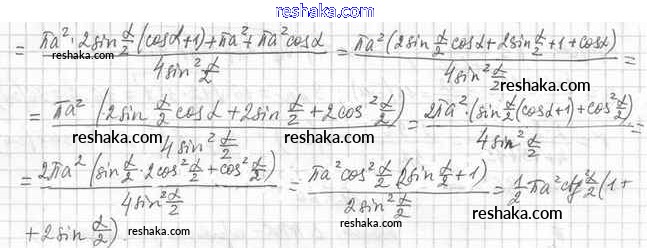 reshaka.com
= πa²·2sin α/2 (cosα+1)+πa²+πa²cosα / 4sin² α/2 = πa²(2sin α/2 cosα+2sin α/2+1+cosα) / 4sin² α/2 =
reshaka.com reshaka.com
= πa² (2sin α/2 cosα + 2sin α/2 + 2cos² α/2) / 4sin² α/2 = 2πa²·(sin α/2 (cosα+1)+cos² α/2) / 4sin² α/2 =
reshaka.com reshaka.com reshaka.com
= 2πa² (sin α/2 · 2cos² α/2 + cos² α/2) / 4sin² α/2 = πa²cos² α/2 (2sin α/2 + 1) / 2sin² α/2 = 1/2 πa² ctg² α/2 (1+
+ 2sin α/2)
reshaka.com reshaka.com